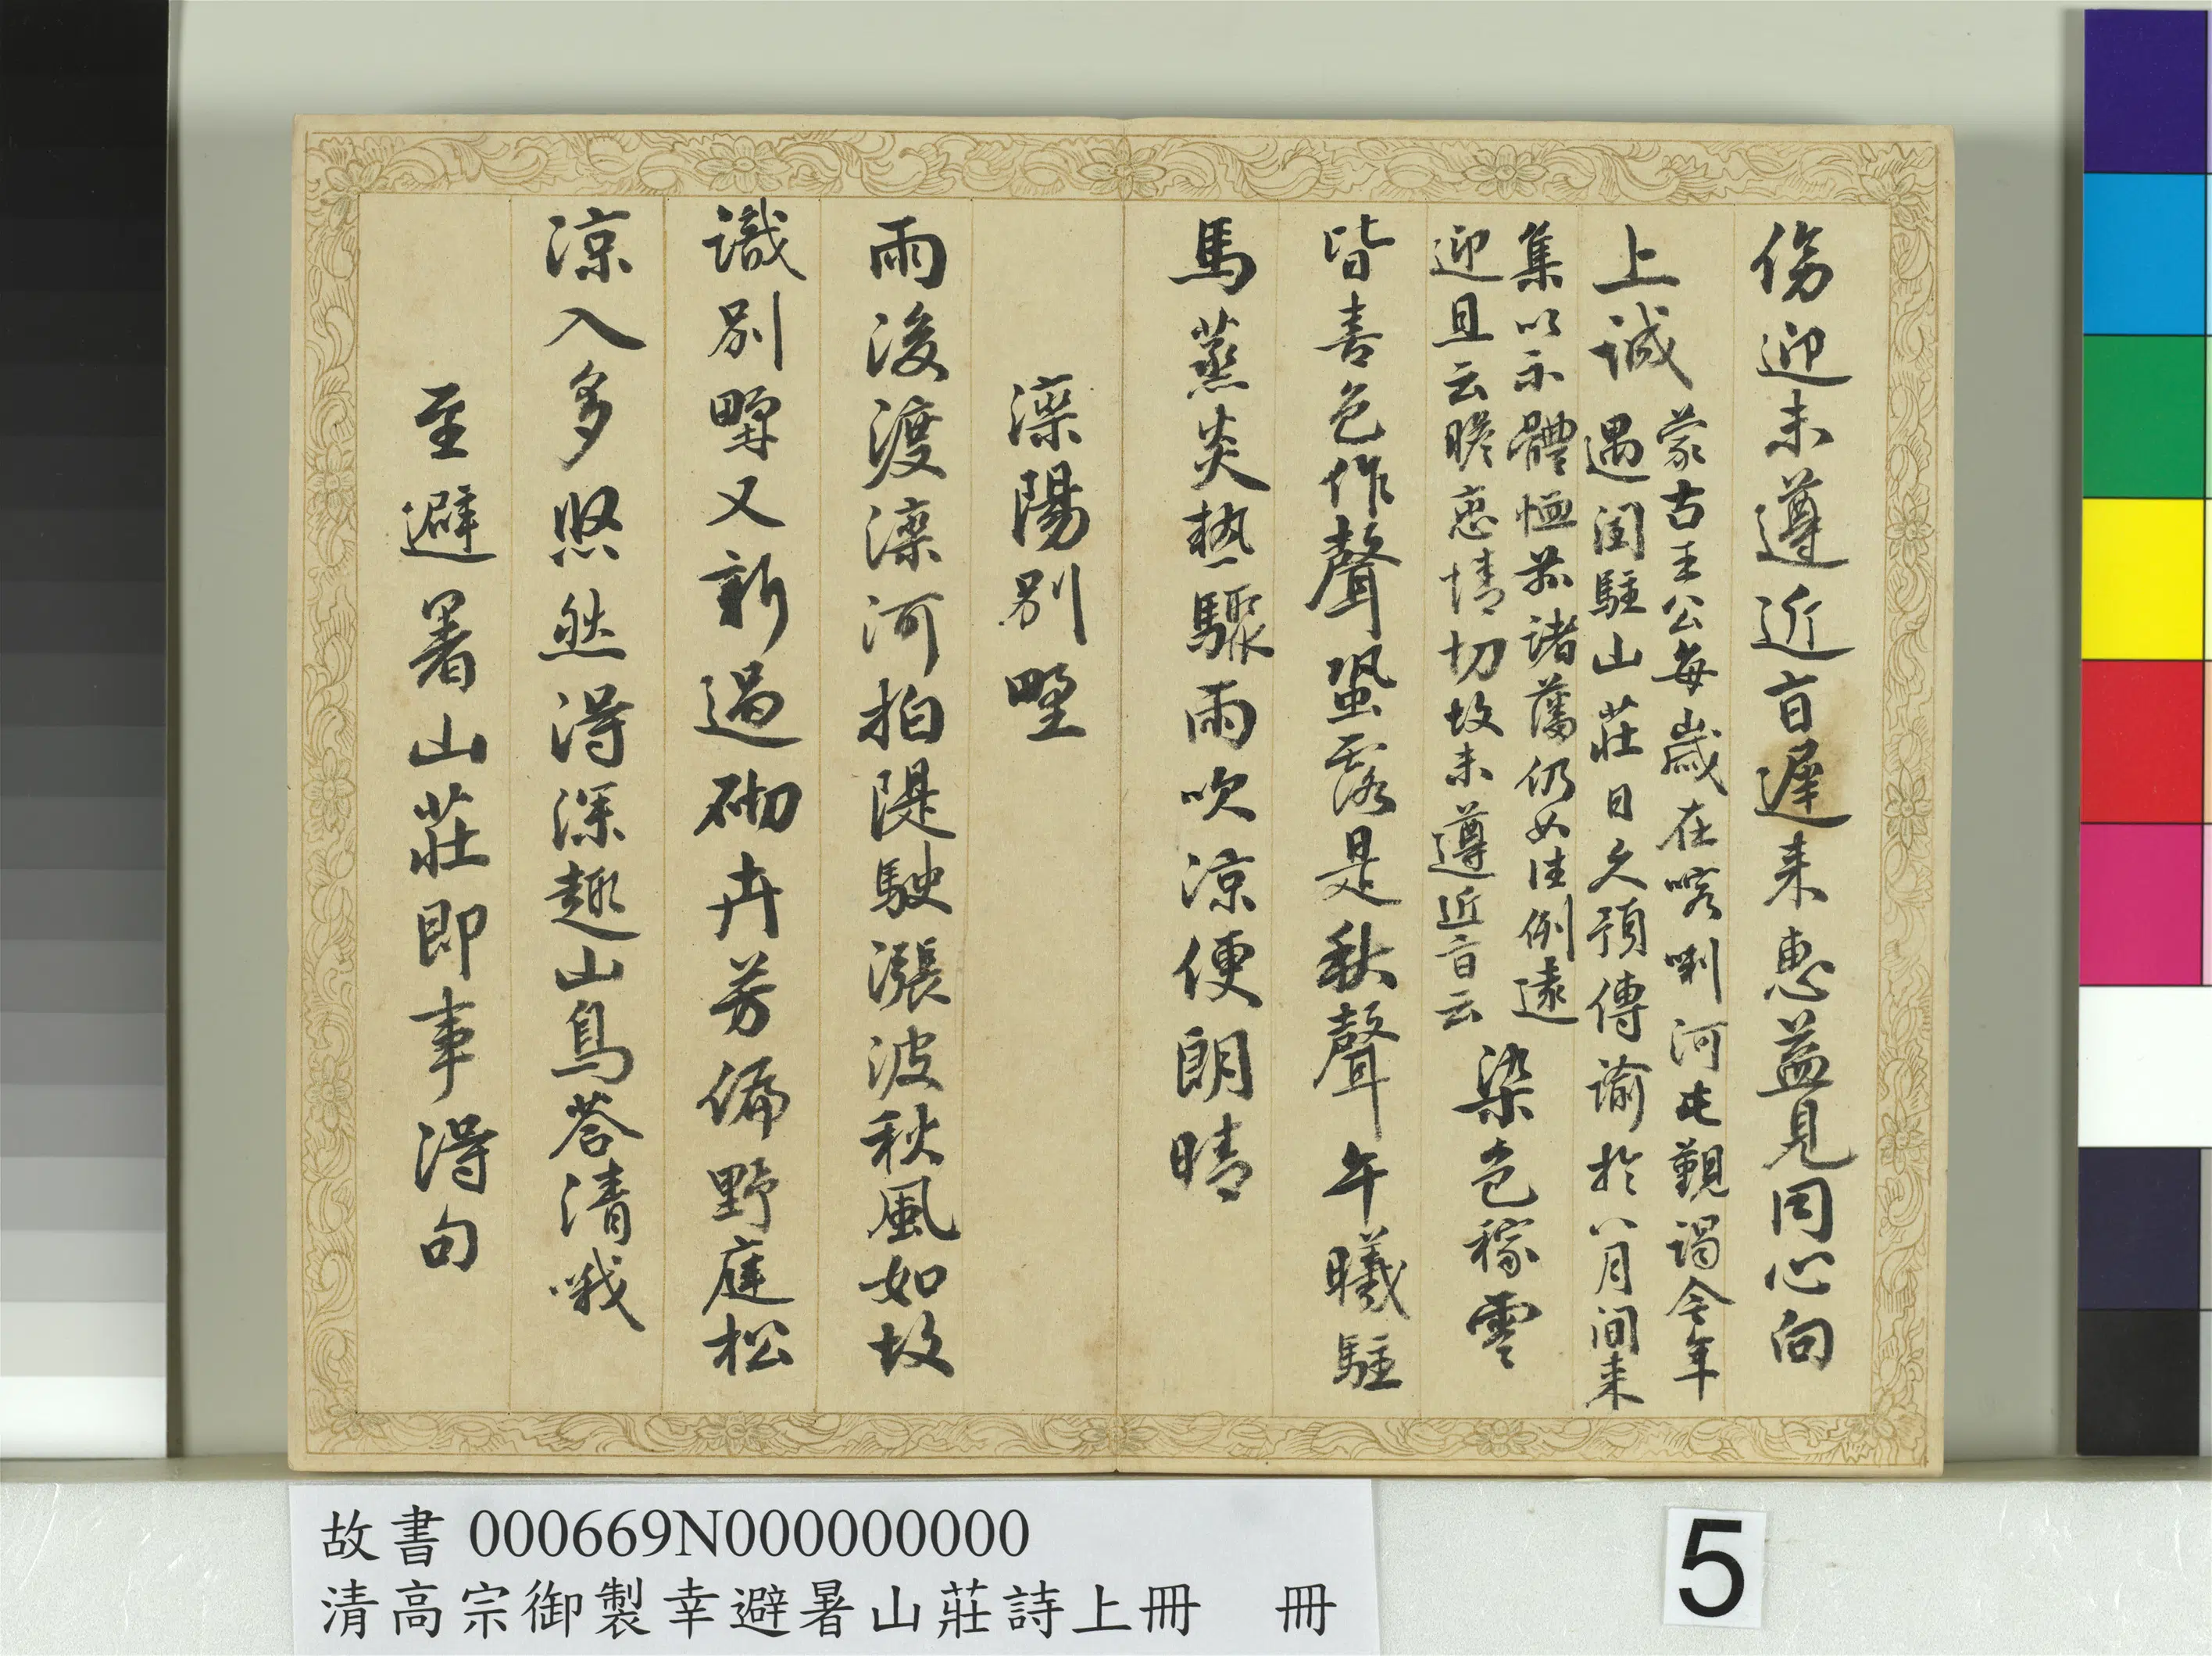 傍迎未遵近旨遲来惠益見同心向
上誠
蒙古王公每歲在喀喇河屯覲謁今年
遇閏駐山莊日久預傳諭於八月間来
集以示體恤茲諸藩仍如往例遠
迎且云瞻戀情切故未遵近旨云
染色稼雲
皆喜色作聲蛩露是秋聲午曦駐
馬蒸炎熱驟雨吹涼便朗晴
灤陽别墅
雨後渡灤河拍隄駛漲波秋風如故
識别墅又新過砌卉芳偏野庭松
涼入多照然得深趣山鳥答清哦
至避暑山莊即事得句
故書 000669N000000000
清高宗御製幸避暑山莊詩上冊 冊
5